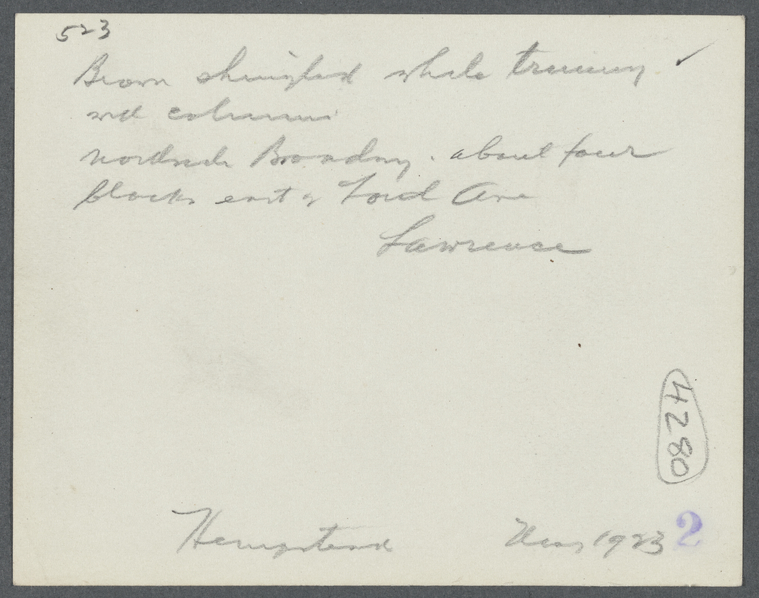 523
Brown shingled white trimming ✓
and columns
northside Broadway. about four
blocks east of Lord Ave
Lawrence
4280
Hempstead 1923 2